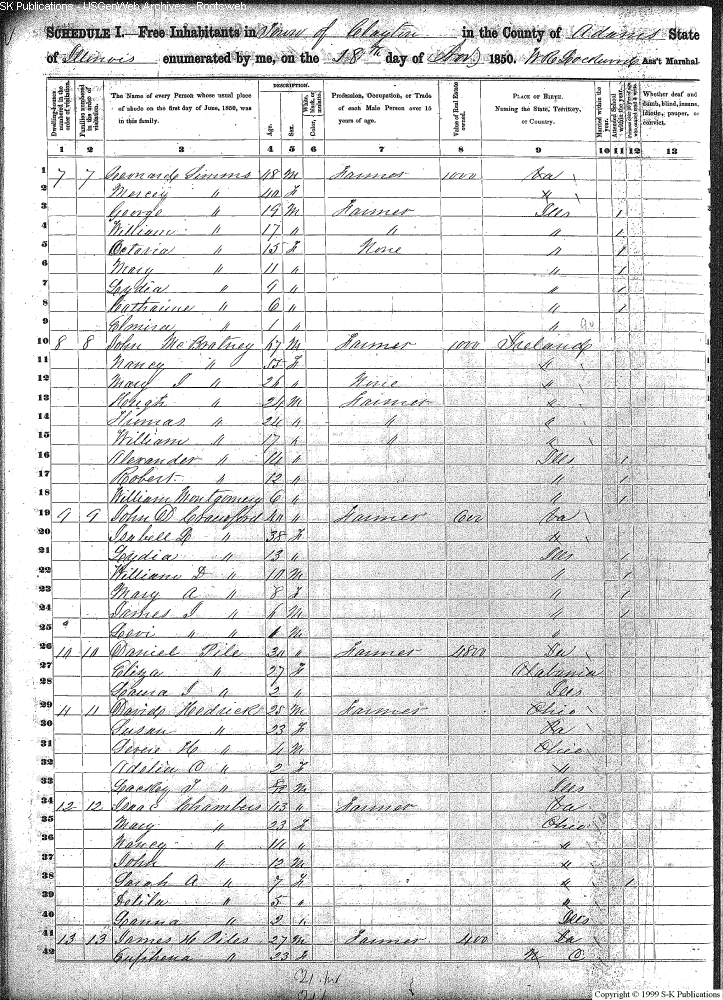 SK Publications - USGenWeb Archives - Rootsweb
SCHEDULE I.—Free Inhabitants in Town of Clayton in the County of Adams State
of Illinois enumerated by me, on the 18th day of Nov 1850. Ass't Marshal
DESCRIPTION.
Dwelling-houses numbered in the order of visitation.
Families numbered in the order of visitation.
The Name of every Person whose usual place of abode on the first day of June, 1850, was in this family.
Age.
Sex.
Color, White, black, or mulatto.
Profession, Occupation, or Trade of each Male Person over 15 years of age.
Value of Real Estate owned.
PLACE OF BIRTH. Naming the State, Territory, or Country.
Married within the year.
Attended School within the year.
Whether deaf and dumb, blind, insane, idiotic, pauper, or convict.
1 2 3 4 5 6 7 8 9 10 11 12 13
1 7 7 Leonard Simms 48 M Farmer 1000 Va
2 Mercey " 40 F "
3 George " 19 M Farmer Ills 1
4 William " 17 " " " 1
5 Octavia " 15 F None " 1
6 Mary " 11 " " 1
7 Lydia " 9 " " 1
8 Catharine " 6 " " 1
9 Elmira " 1 " "
10 8 8 John McCratney 47 M Farmer 1000 Ireland
11 Nancy " 55 F "
12 Mary J " 26 " None "
13 Hough " 24 M Farmer "
14 Thomas " 24 " " "
15 William " 17 " " "
16 Alexander " 14 " Ills 1
17 Robert " 12 " " 1
18 William Montgomery 6 " " 1
19 9 9 John D Crawford 40 " Farmer 600 Va
20 Isabell " 38 F "
21 Lydia " 13 " Ills 1
22 William D " 10 M " 1
23 Mary A " 8 F " 1
24 James J " 6 M " 1
25 Levi " " 1 M "
26 10 10 Daniel Pile 30 " Farmer 4800
27 Eliza " 27 F Alabama
28 Laura J " 2 " Ills
29 11 11 David Hedrick 25 M Farmer Ohio
30 Susan " 23 F
31 H " 4 M Ohio
32 Adelia C " 2 F "
33 " M Ills
34 12 12 Isaac Chambers 43 " Farmer Va
35 Mary " 23 F Ohio
36 Nancy " 14 " "
37 John " 12 M "
38 Sarah A " 7 F " 1
39 Delila " 5 " "
40 " 2 " Ills
41 13 13 James H Piles 27 M Farmer 400
42 Euphena " 23 F N C
Copyright © 1999 S-K Publications